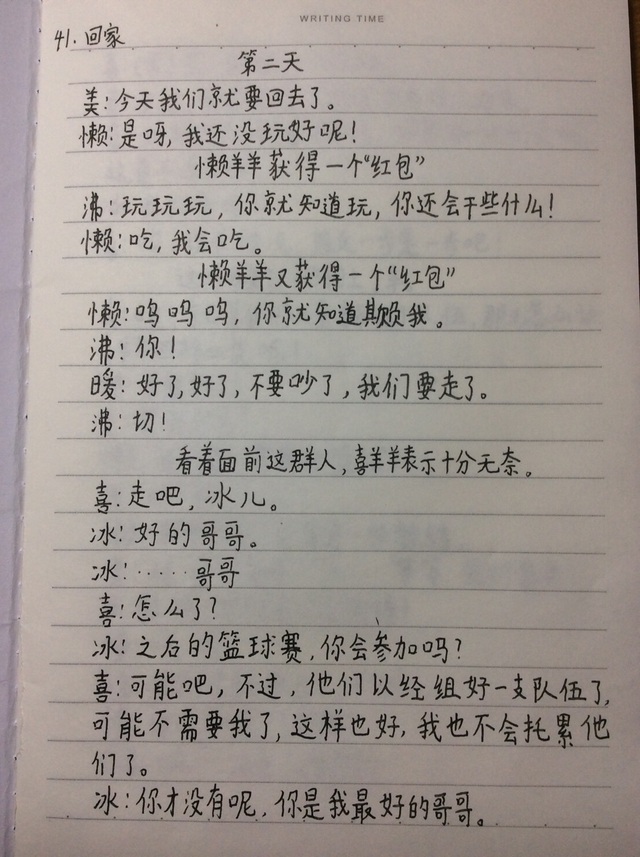 WRITING TIME
41. 回家
第二天
美:今天我们就要回去了。
懒:是呀,我还没玩好呢!
懒羊羊获得一个“红包”
沸:玩玩玩,你就知道玩,你还会干些什么!
懒:吃,我会吃。
懒羊羊又获得一个“红包”
懒:呜呜呜,你就知道欺负我。
沸:你!
暖:好了,好了,不要吵了,我们要走了。
沸:切!
看着面前这群人,喜羊羊表示十分无奈。
喜:走吧,冰儿。
冰:好的哥哥。
冰:·····哥哥
喜:怎么了?
冰:之后的篮球赛,你会参加吗?
喜:可能吧,不过,他们以经组好一支队伍了,
可能不需要我了,这样也好,我也不会托累他
们了。
冰:你才没有呢,你是我最好的哥哥。